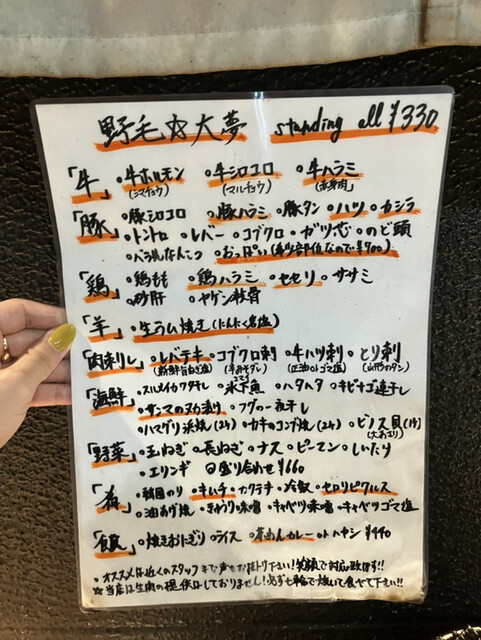 野毛☆大夢 standing all ¥330
「牛」 ・牛ホルモン(シマチョウ) ・牛シロコロ(マルチョウ) ・牛ハラミ(赤身肉)
「豚」 ・豚シロコロ ・豚ハラミ ・豚タン ・ハツ ・カシラ
・トントロ ・レバー ・コブクロ ・ガツ芯 ・のど頭
・べろ元なんこつ ・おっぱい(希少部位なので¥400)
「鶏」 ・鶏もも ・鶏ハラミ ・セセリ ・ササミ
・砂肝 ・ヤゲン軟骨
「羊」 ・生ラム焼き(にんにく名塩)
「肉刺し」 ・レバテキ(新鮮旨ねぎ塩) ・コブクロ刺 ・牛ハツ刺(正油orゴマ塩) ・とり刺
「海鮮」 ・スルメイカワタ干し ・氷下魚 ・ハタハタ ・キビナゴ連干し
・サンマのヌカ漬け ・フグの一夜干し
・ハマグリ浜焼(2ケ) ・カキのコンブ焼(2ケ) ・ビノス貝(1ケ)(大あさり)
「野菜」 ・玉ねぎ ・長ねぎ ・ナス ・ピーマン ・しいたけ
・エリンギ 盛り合わせ ¥660
・韓国のり ・キムチ ・カクテキ ・冷奴 ・セロリピクルス
・油あげ焼 ・きゅうり味噌 ・キャベツ味噌 ・キャベツゴマ塩
「飯」 ・焼きおにぎり ・ライス カレーorハヤシ ¥440
・オススメは近くのスタッフまで声をお掛け下さい!笑顔で対応致します!!
☆当店は生肉の提供はしておりません!必ず七輪で焼いて食べて下さい!!